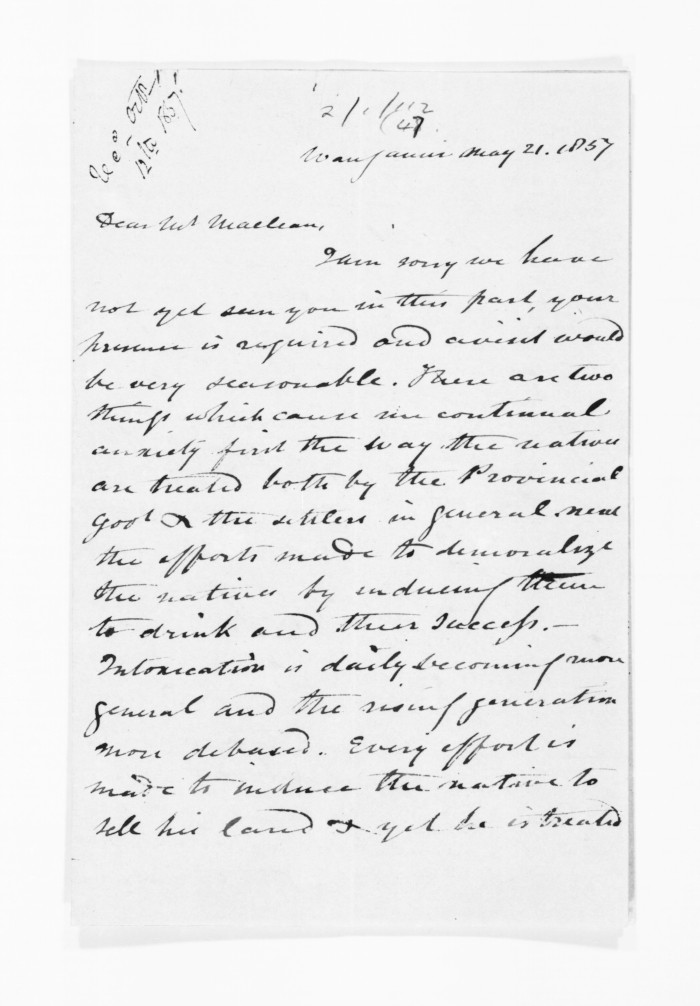 Rec^d Oct^r
12th 1857
Wanganui May 21. 1857
Dear Mr Maclean,
I am sorry we have
not yet seen you in this part, your
presence is required and a visit would
be very seasonable. There are two
things which cause me continual
anxiety first the way the natives
are treated both by the Provincial
Govt & the settlers in general. next
the efforts made to demoralize
the natives by inducing them
to drink and their success.—
Intoxication is daily becoming more
general and the rising generation
more debased. Every effort is
made to induce the native to
sell his land & yet he is treated